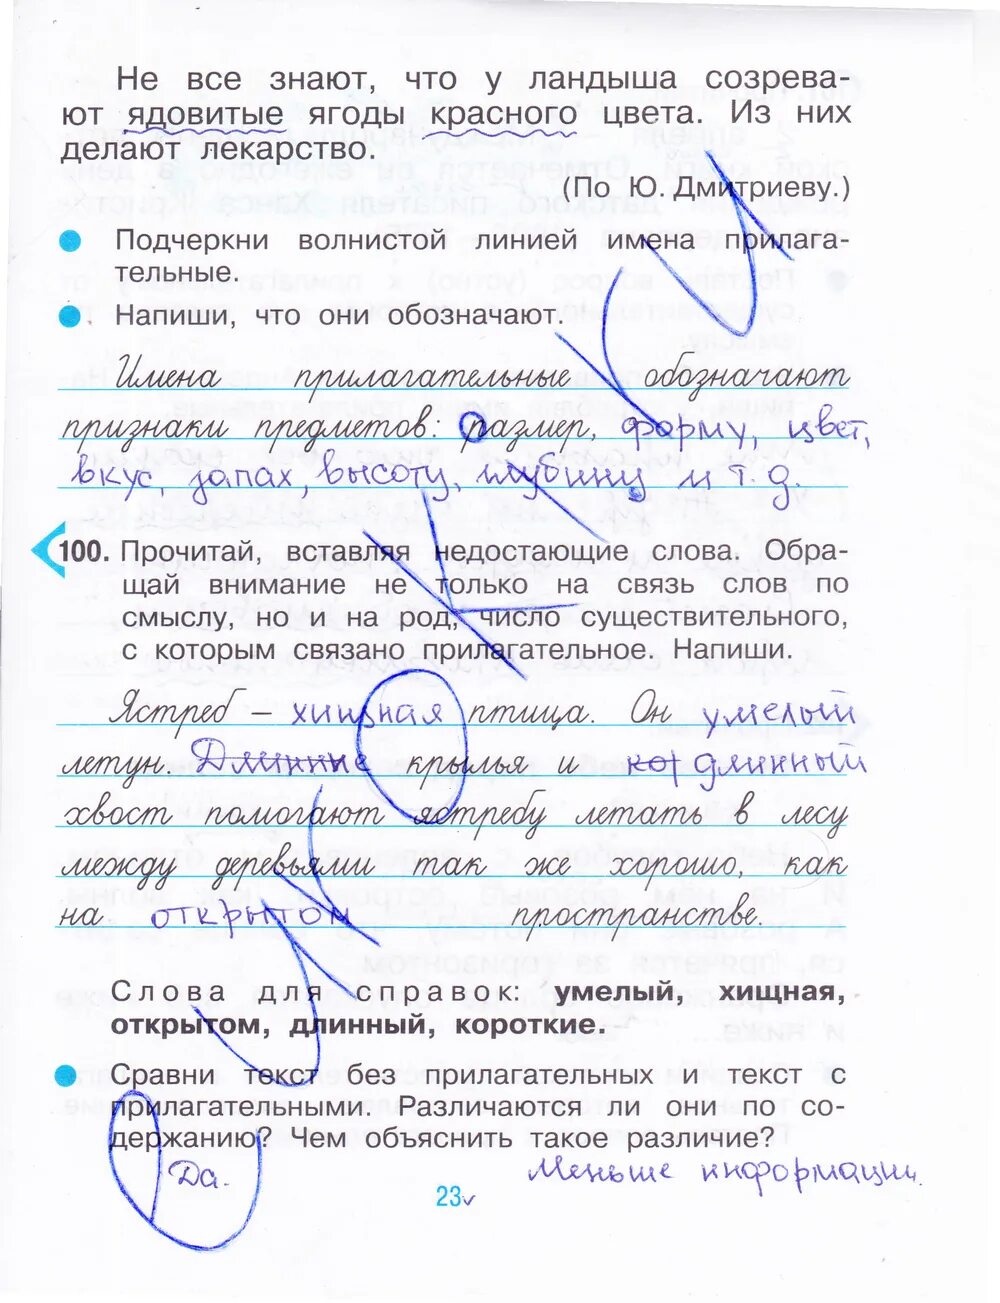 Не все знают, что у ландыша созрева-
ют ядовитые ягоды красного цвета. Из них
делают лекарство.
(По Ю. Дмитриеву.)
Подчеркни волнистой линией имена прилага-
тельные.
Напиши, что они обозначают.
Имена прилагательные обозначают
признаки предметов: размер, форму, цвет,
вкус, запах, высоту, глубину и т.д.
100. Прочитай, вставляя недостающие слова. Обра-
щай внимание не только на связь слов по
смыслу, но и на род, число существительного,
с которым связано прилагательное. Напиши.
Ястреб – хищная птица. Он умелый
летун. Длинные крылья и кор длинный
хвост помогают ястребу летать в лесу
между деревьями так же хорошо, как
на открытом пространстве.
Слова для справок: умелый, хищная,
открытом, длинный, короткие.
Сравни текст без прилагательных и текст с
прилагательными. Различаются ли они по со-
держанию? Чем объяснить такое различие?
Да. Меньше информации
23